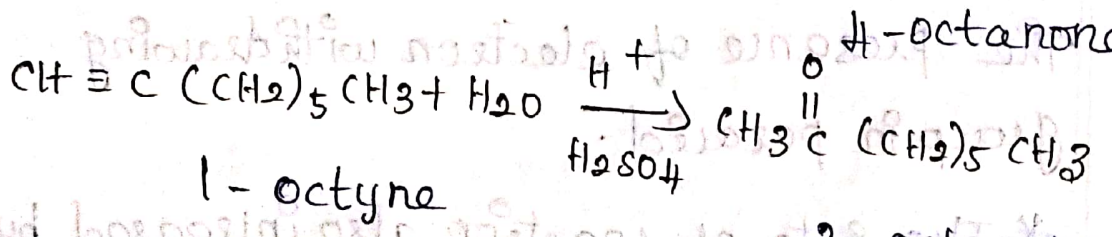 4-octanone
CH ≡ C (CH2)5 CH3 + H2O H+ H2SO4 → CH3 C (CH2)5 CH3
O
||
1-octyne